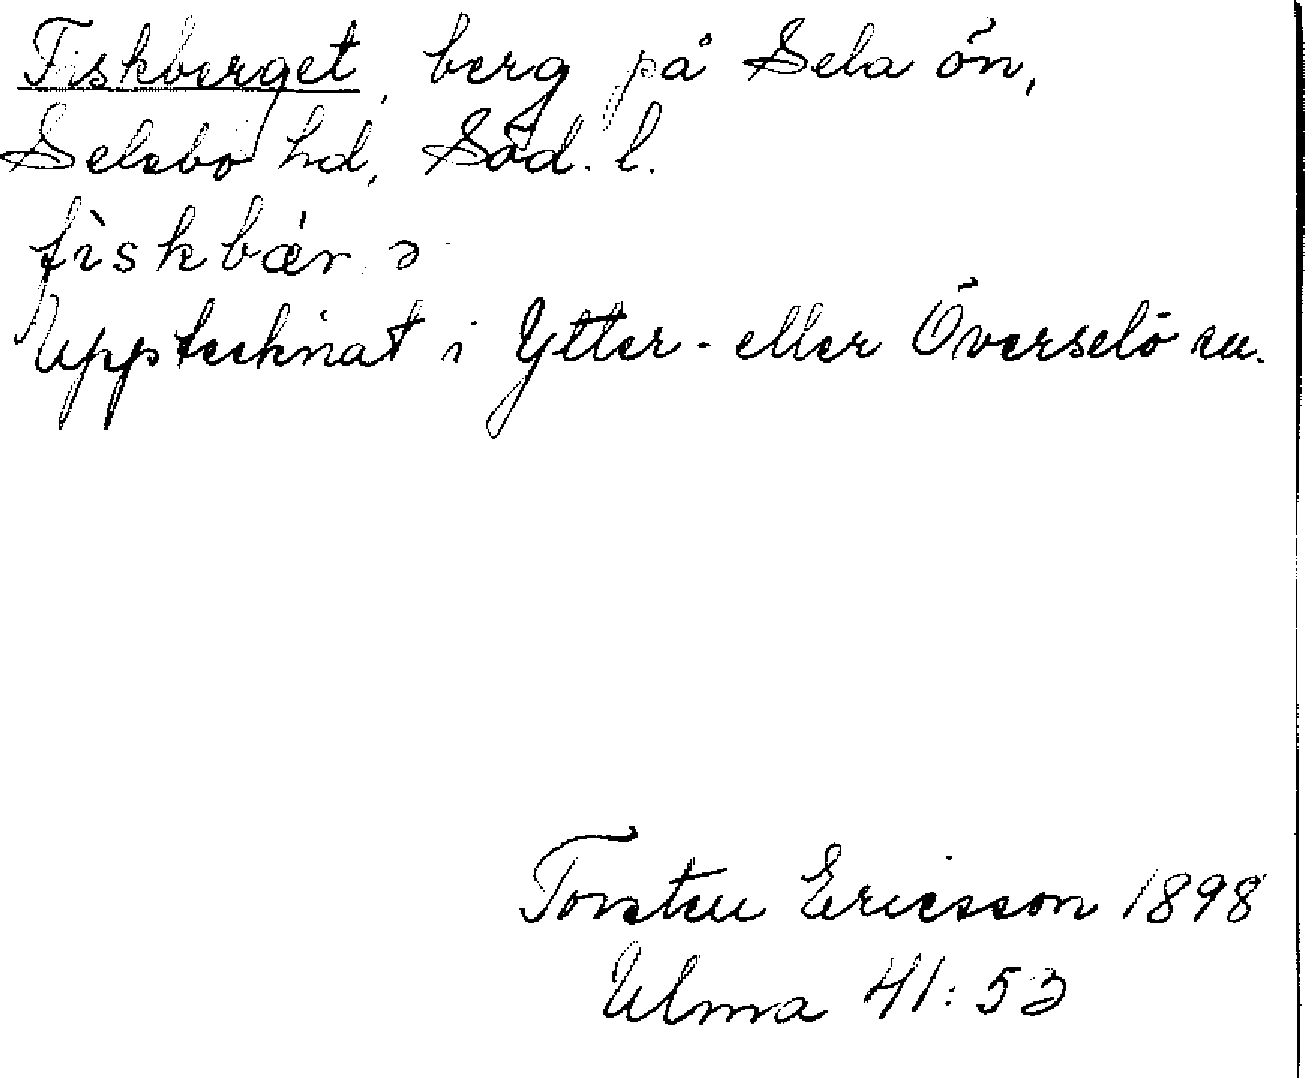 Fiskberget, berg på Selaön,
Selebo hd, Söd. l.
fìskbǽr ə
Upptecknat i Ytter- eller Överselö sn.
Torsten Ericsson 1898
Ulma 41:53